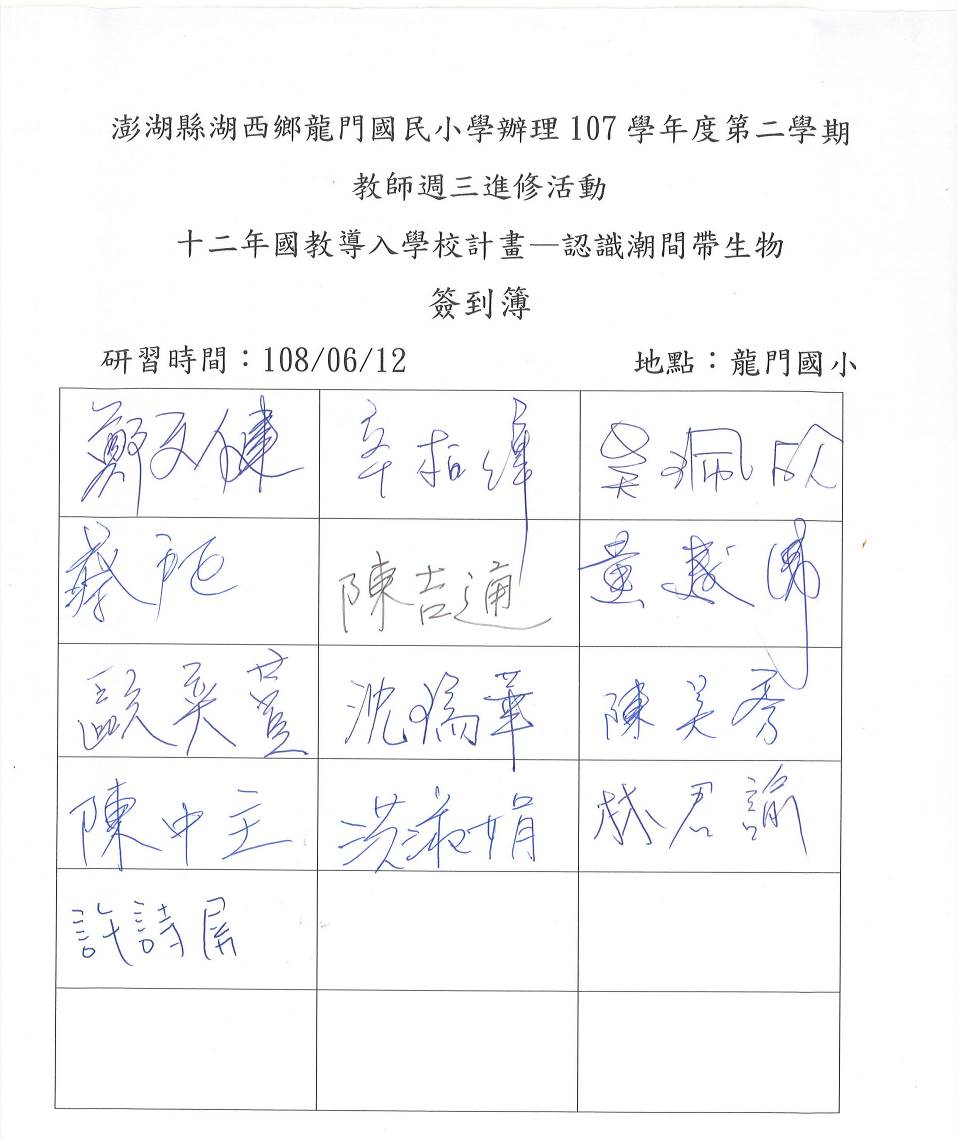 澎湖縣湖西鄉龍門國民小學辦理 107 學年度第二學期
教師週三進修活動
十二年國教導入學校計畫—認識潮間帶生物
簽到簿
研習時間：108/06/12 地點：龍門國小
鄭文健 辛柏緯 吳珮欣
蔡 陳吉通 黃
歐英 沈 華 陳美秀
陳中主 洪淑娟 林君諭
許詩屏